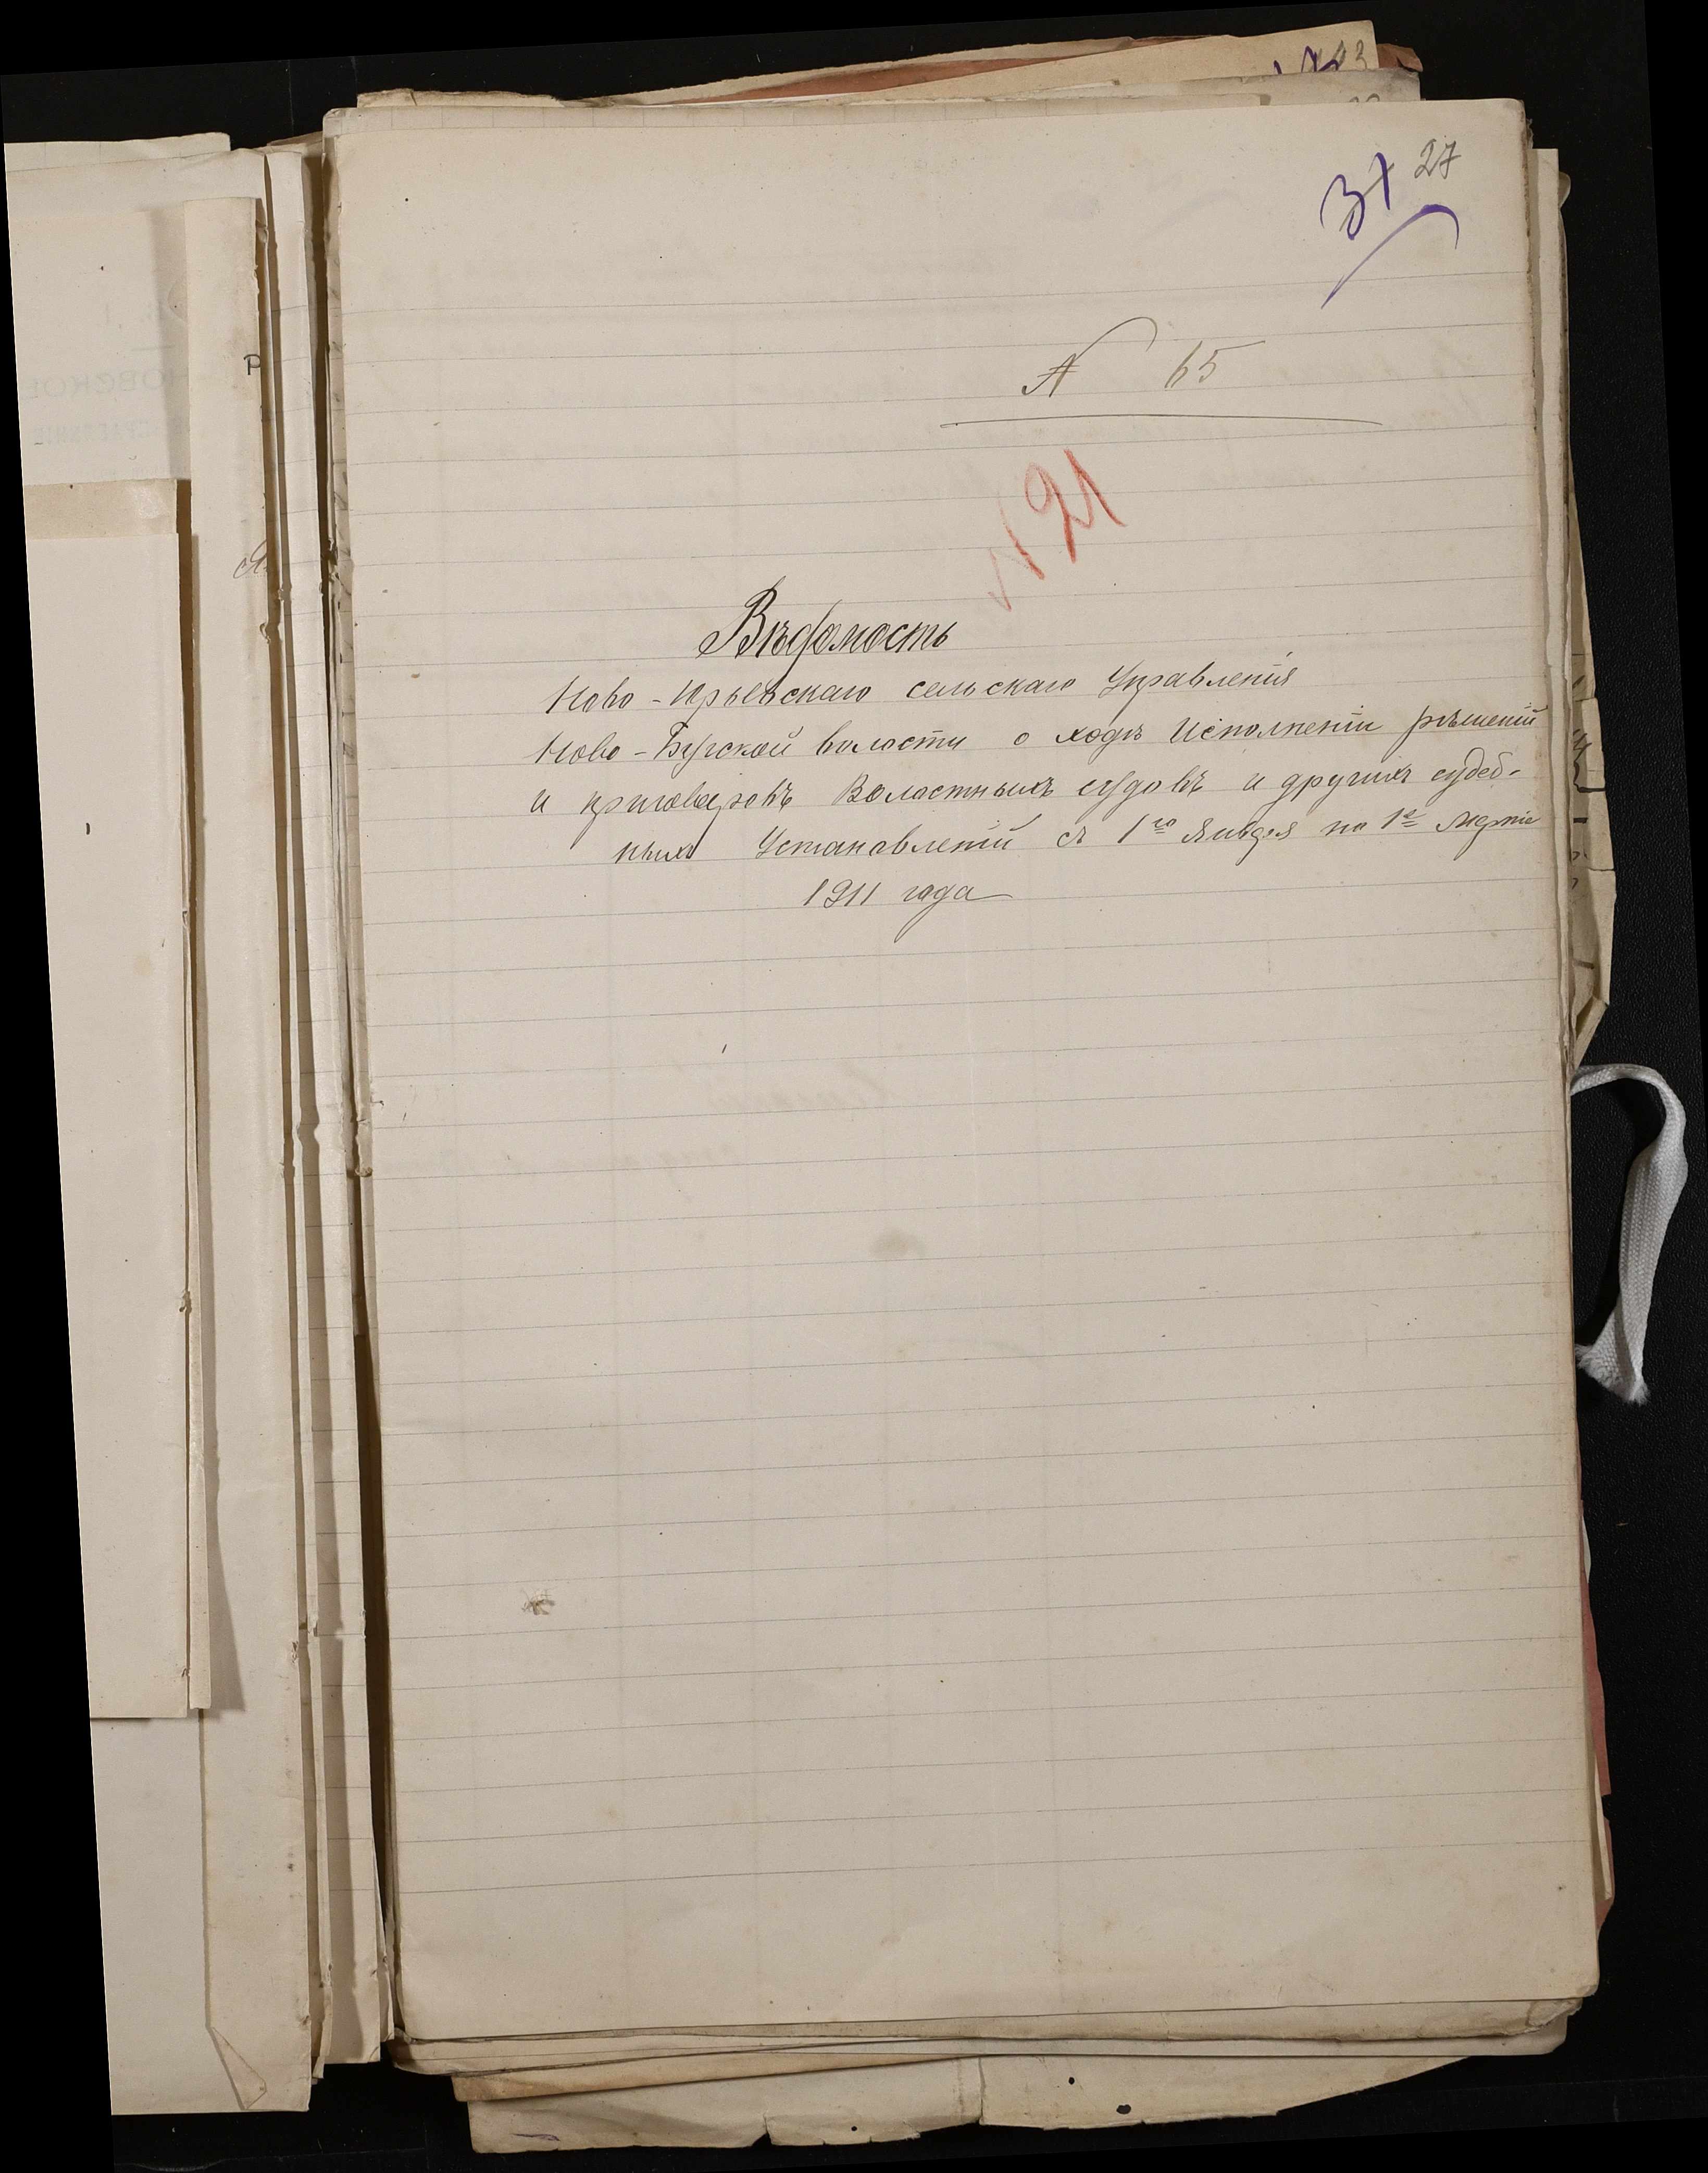 27
37
№ 65
№ 21
Вѣдомость
Ново-Юрьевскаго сельскаго Управленія
Ново-Бугской волости о ходѣ Исполненіи рѣшеній
и приговоровъ Волостныхъ судовъ и другихъ судеб-
ныхъ Установленій съ 1го Января по 1е Марта
1911 года